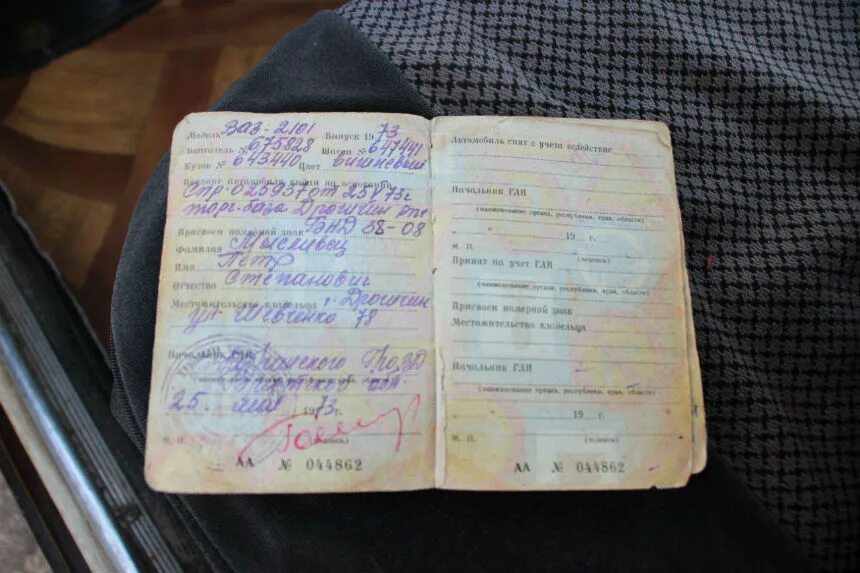 Модель ВАЗ-2101 Выпуск 1973
Двигатель № 675828 Шасси № 647441
Кузов № 643440 Цвет вишневый
Паспорт автомобиля выдан на основании
Стр-025957 от 25 V 73г
торг-база Дрогичин
Присвоен номерной знак БНД 58-08
Фамилия Мысливец
Имя Петр
Отчество Степанович
Местожительство владельца г. Дрогичин
ул. Шевченко 78
Начальник ГАИ
25. мая 1973 г.
М. П. (подпись)
АА № 044862
Автомобиль снят с учета вследствие
Начальник ГАИ
(наименование органа, республики, края, области)
" " 19 г.
М. П. (подпись)
Принят на учет ГАИ
(наименование органа, республики, края, области)
Присвоен номерной знак
Местожительство владельца
Начальник ГАИ
(наименование органа, республики, края, области)
" " 19 г.
М. П. (подпись)
АА № 044862